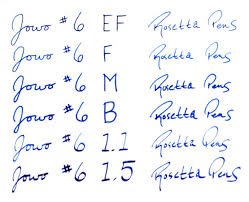 Jowo #6 EF Rosetta Pens
Jowo #6 F Rosetta Pens
Jowo #6 M Rosetta Pens
Jowo #6 B Rosetta Pens
Jowo #6 1.1 Rosetta Pens
Jowo #6 1.5 Rosetta Pens